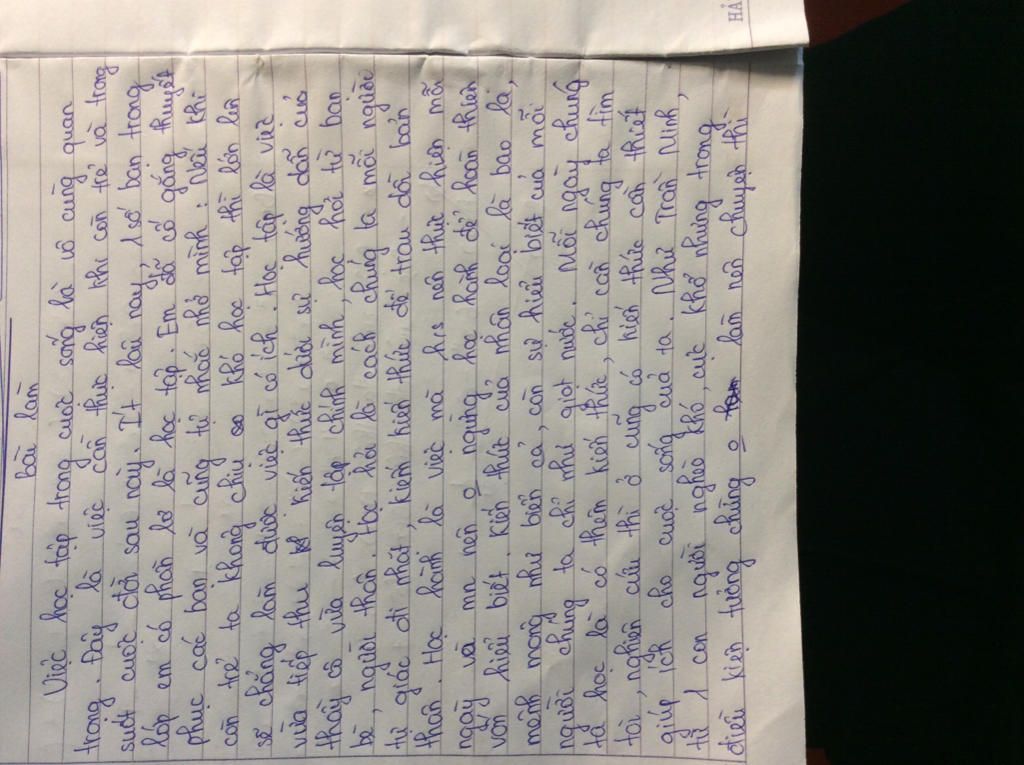 bài làm
Việc học tập trong cuộc sống là vô cùng quan
trọng. Đây là việc cần thực hiện khi còn trẻ và trong
suốt cuộc đời sau này. Ít lâu nay, 1 số bạn trong
lớp em có phần lơ là học tập. Em đã cố gắng thuyết
phục các bạn và cũng tự nhắc nhở mình: Nếu khi
còn trẻ ta không chịu khó học tập thì lớn lên
sẽ chẳng làm được việc gì có ích. Học tập là việc
vừa tiếp thu kiến thức dưới sự hướng dẫn của
thầy cô vừa luyện tập chính mình, học hỏi từ bạn
bè, người thân. Học hỏi là cách chúng ta mỗi người
tự giác đi phát, kiến kiến thức để trau dồi bản
thân. Học hành là việc mà hrs nên thực hiện mỗi
ngày và mn nên o ngừng học hành để hoàn thiện
vốn hiểu biết. Kiến thức của nhân loại là bao la,
mênh mông như biển cả, còn sự hiểu biết của mỗi
người chúng ta chỉ như giọt nước. Mỗi ngày chúng
ta học là có thêm kiến thức, chỉ cần chúng ta tìm
tòi, nghiên cứu thì ở cũng có kiến thức cần thiết
giúp ích cho cuộc sống của ta. Như Trần Ninh,
từ 1 con người nghèo khó, cực khổ nhưng trong
điều kiện tưởng chừng o làm nên chuyện thì
HẢ